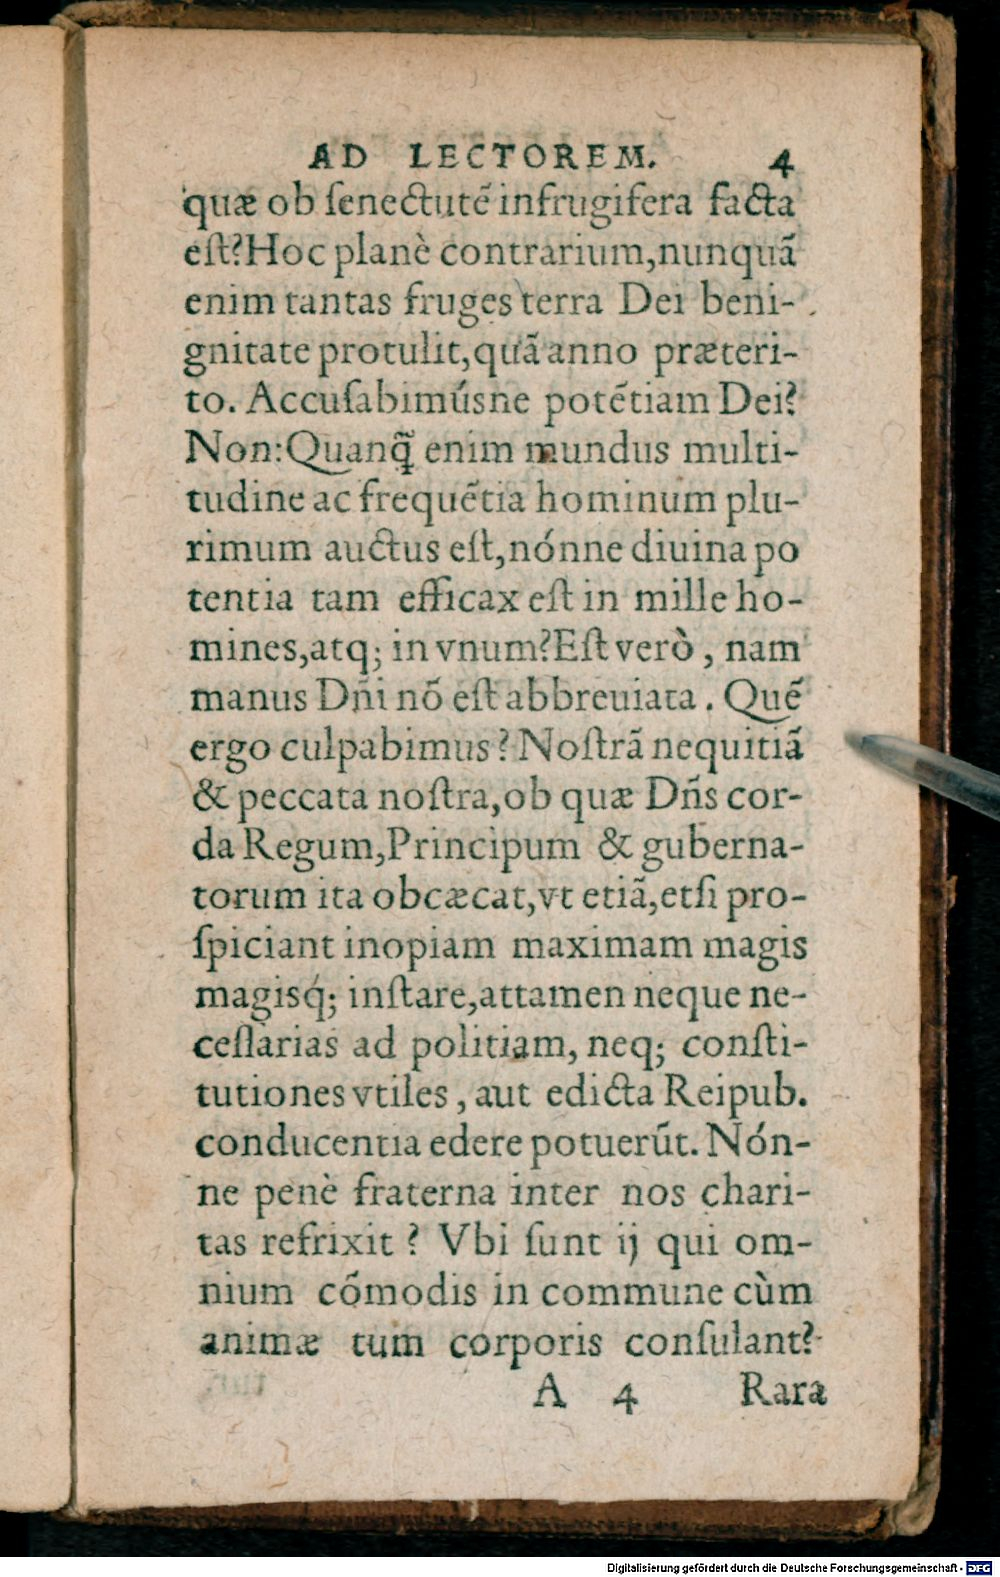 AD LECTOREM. 4
quæ ob ſenectutẽ infrugifera facta
eſt?Hoc planè contrarium,nunquã
enim tantas fruges terra Dei beni-
gnitate protulit,quã anno præteri-
to. Accuſabimúsne potẽtiam Dei?
Non:Quanq̃ enim mundus multi-
tudine ac frequẽtia hominum plu-
rimum auctus eſt,nónne diuina po
tentia tam efficax eſt in mille ho-
mines,atq; in vnum?Eſt verò, nam
manus Dñi nõ eſt abbreuiata. Quẽ
ergo culpabimus? Noſtrã nequitiã
& peccata noſtra,ob quæ Dñs cor-
da Regum,Principum & guberna-
torum ita obcæcat,vt etiã,etſi pro-
ſpiciant inopiam maximam magis
magisq́; inſtare,attamen neque ne-
ceſſarias ad politiam, neq; conſti-
tutiones vtiles, aut edicta Reipub.
conducentia edere potuerũt. Nón-
ne penè fraterna inter nos chari-
tas refrixit? Vbi ſunt ij qui om-
nium cõmodis in commune cùm
animæ tum corporis conſulant?
A 4 Rara
Digitalisierung gefördert durch die Deutsche Forschungsgemeinschaft - DFG